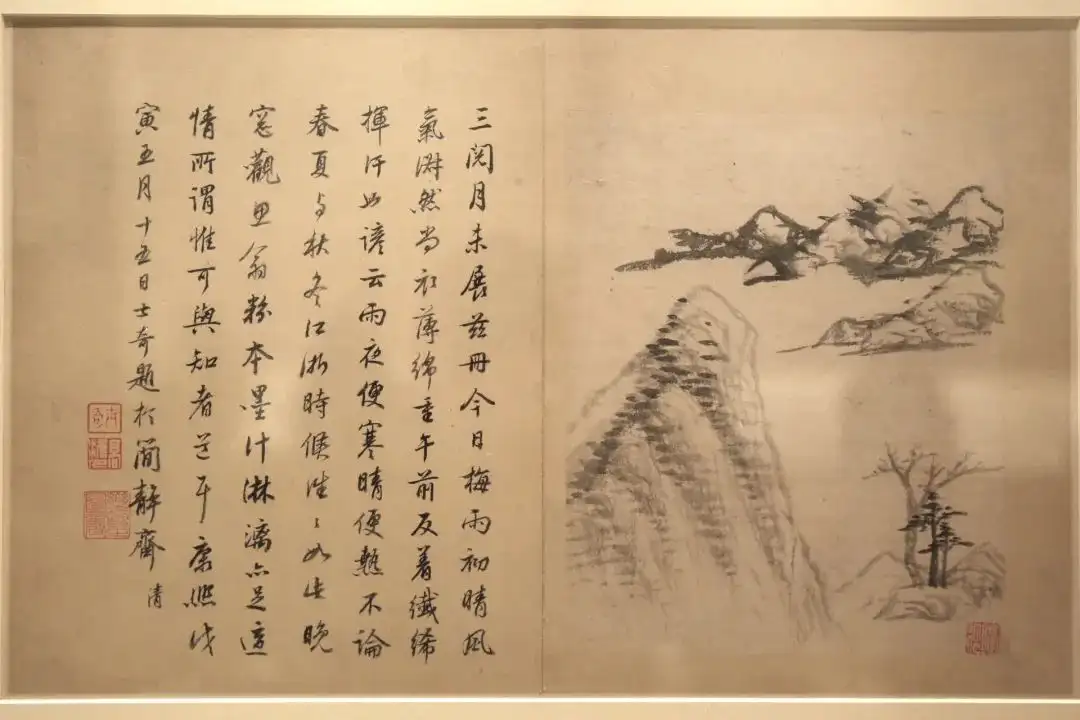 三閱月未展茲冊今日梅雨初晴風
氣然尚衣薄綿垂午前反着纖絺
揮汗如諺云雨夜便寒晴便熱不論
春夏与秋冬江浙時候往〻如此晚
窓觀思翁粉本墨汁淋漓亦足適
情所謂惟可與知者道耳康熙戊
寅五月十五日士奇題於簡靜齋
清